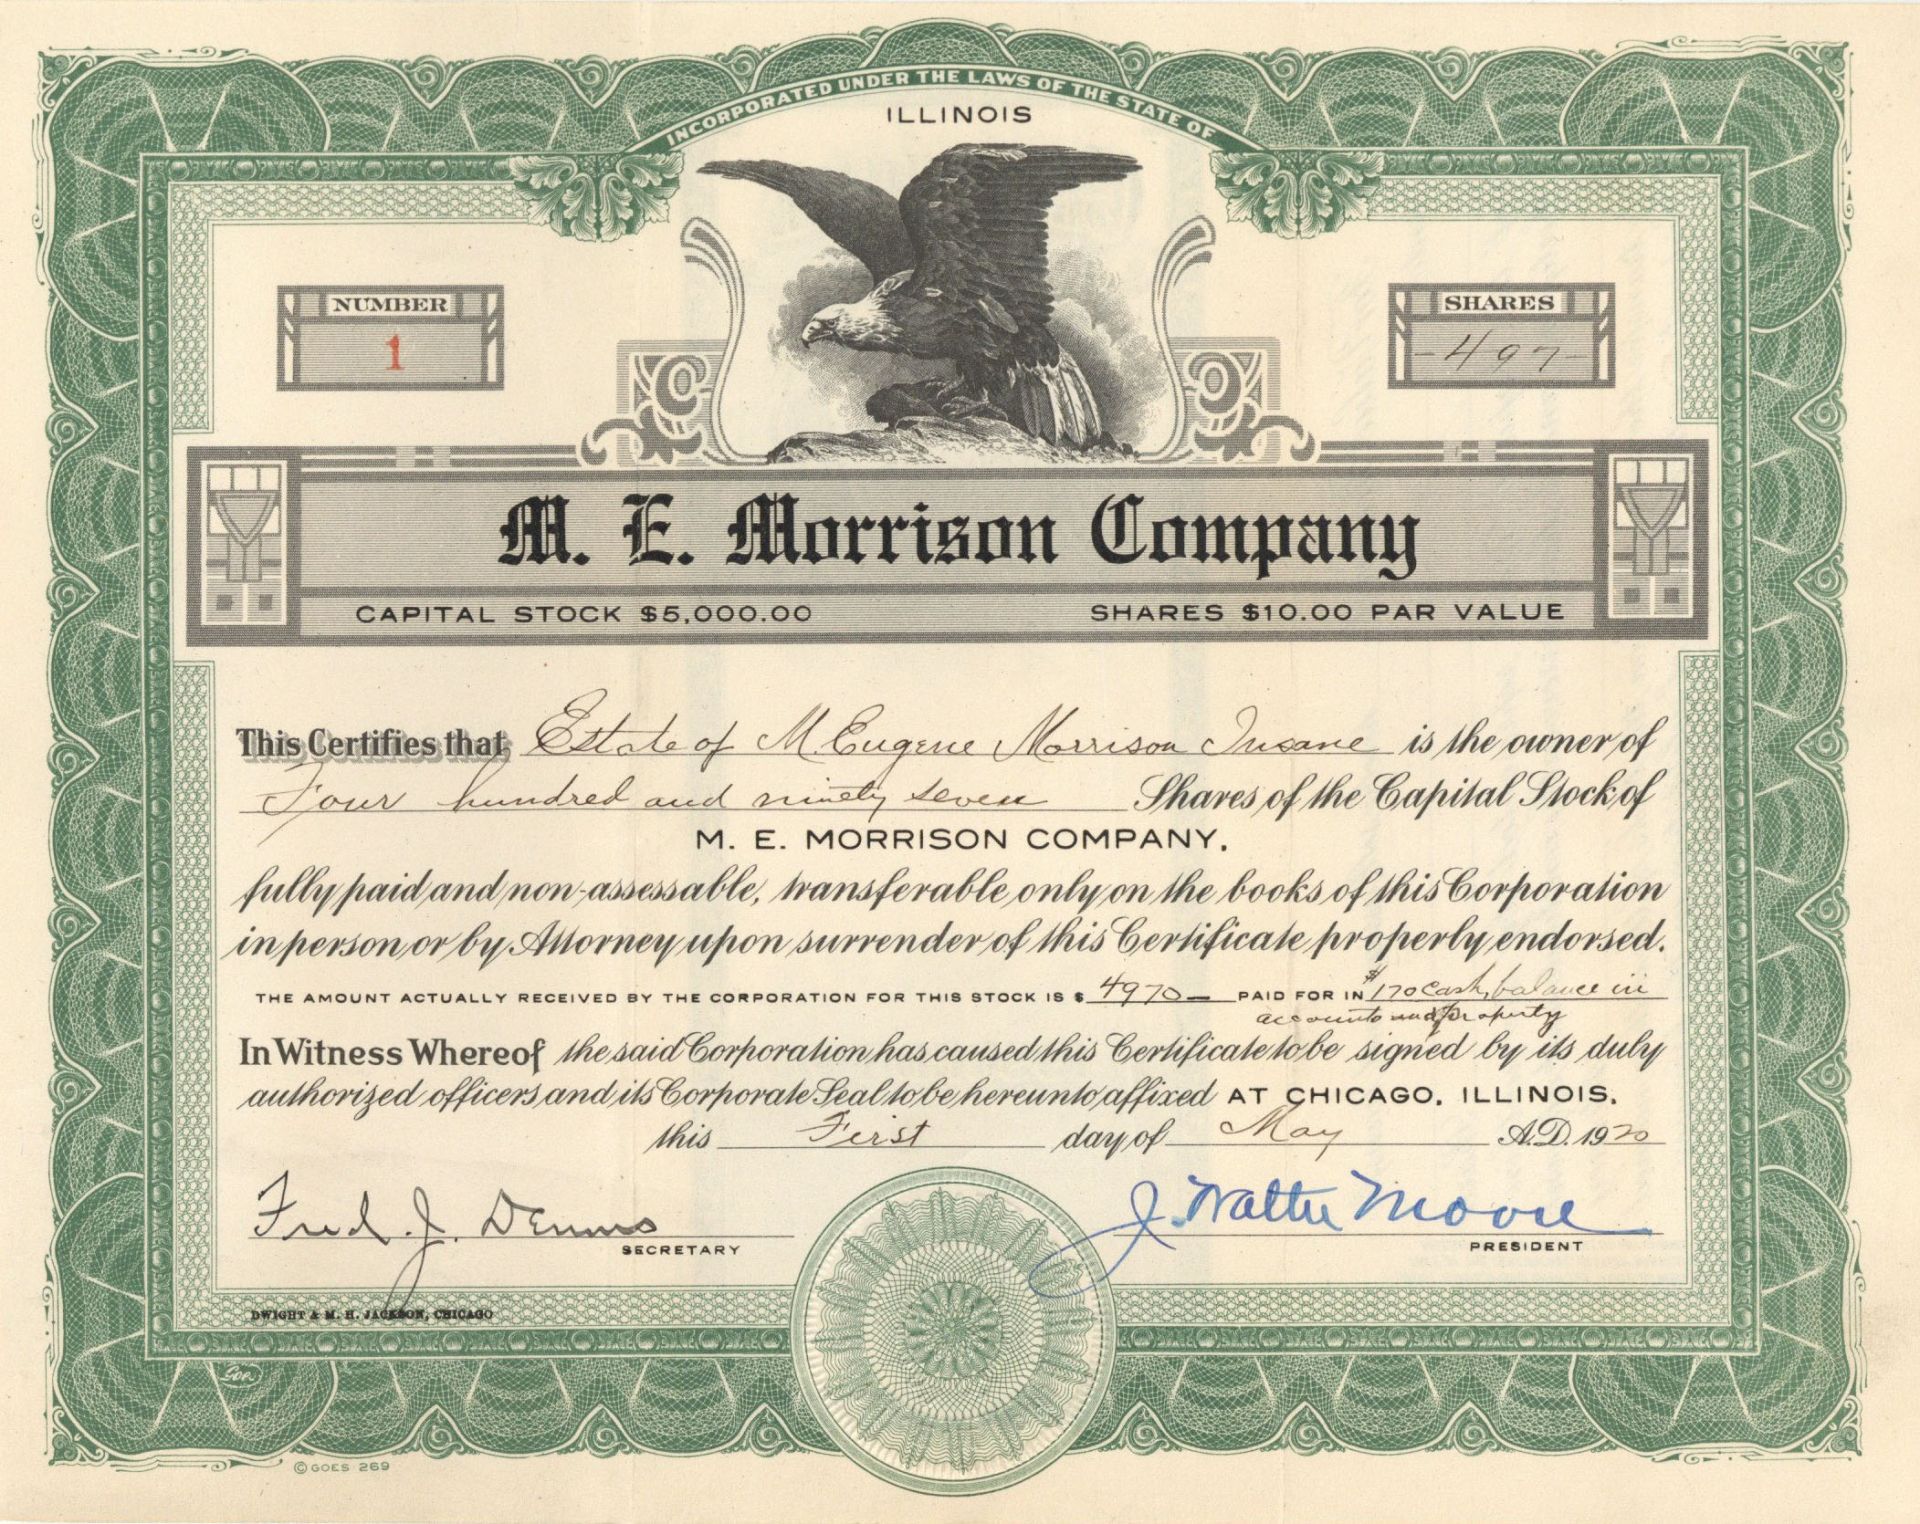 INCORPORATED UNDER THE LAWS OF THE STATE OF
ILLINOIS
NUMBER
1
SHARES
-497-
M. E. Morrison Company
CAPITAL STOCK $5,000.00 SHARES $10.00 PAR VALUE
This Certifies that Estate of M Eugene Morrison Insane is the owner of
Four hundred and ninety seven Shares of the Capital Stock of
M. E. MORRISON COMPANY.
fully paid and non-assessable, transferable only on the books of this Corporation
in person or by Attorney upon surrender of this Certificate properly endorsed.
THE AMOUNT ACTUALLY RECEIVED BY THE CORPORATION FOR THIS STOCK IS $ 4970— PAID FOR IN $170 Cash, balance in
accounts and property
In Witness Whereof the said Corporation has caused this Certificate to be signed by its duly
authorized officers and its Corporate Seal to be hereunto affixed AT CHICAGO, ILLINOIS.
this First day of May A.D. 1920
Fred. J. Dennis
SECRETARY
J. Walter Moore
PRESIDENT
DWIGHT & M. H. JACKSON, CHICAGO
Goes
©GOES 269